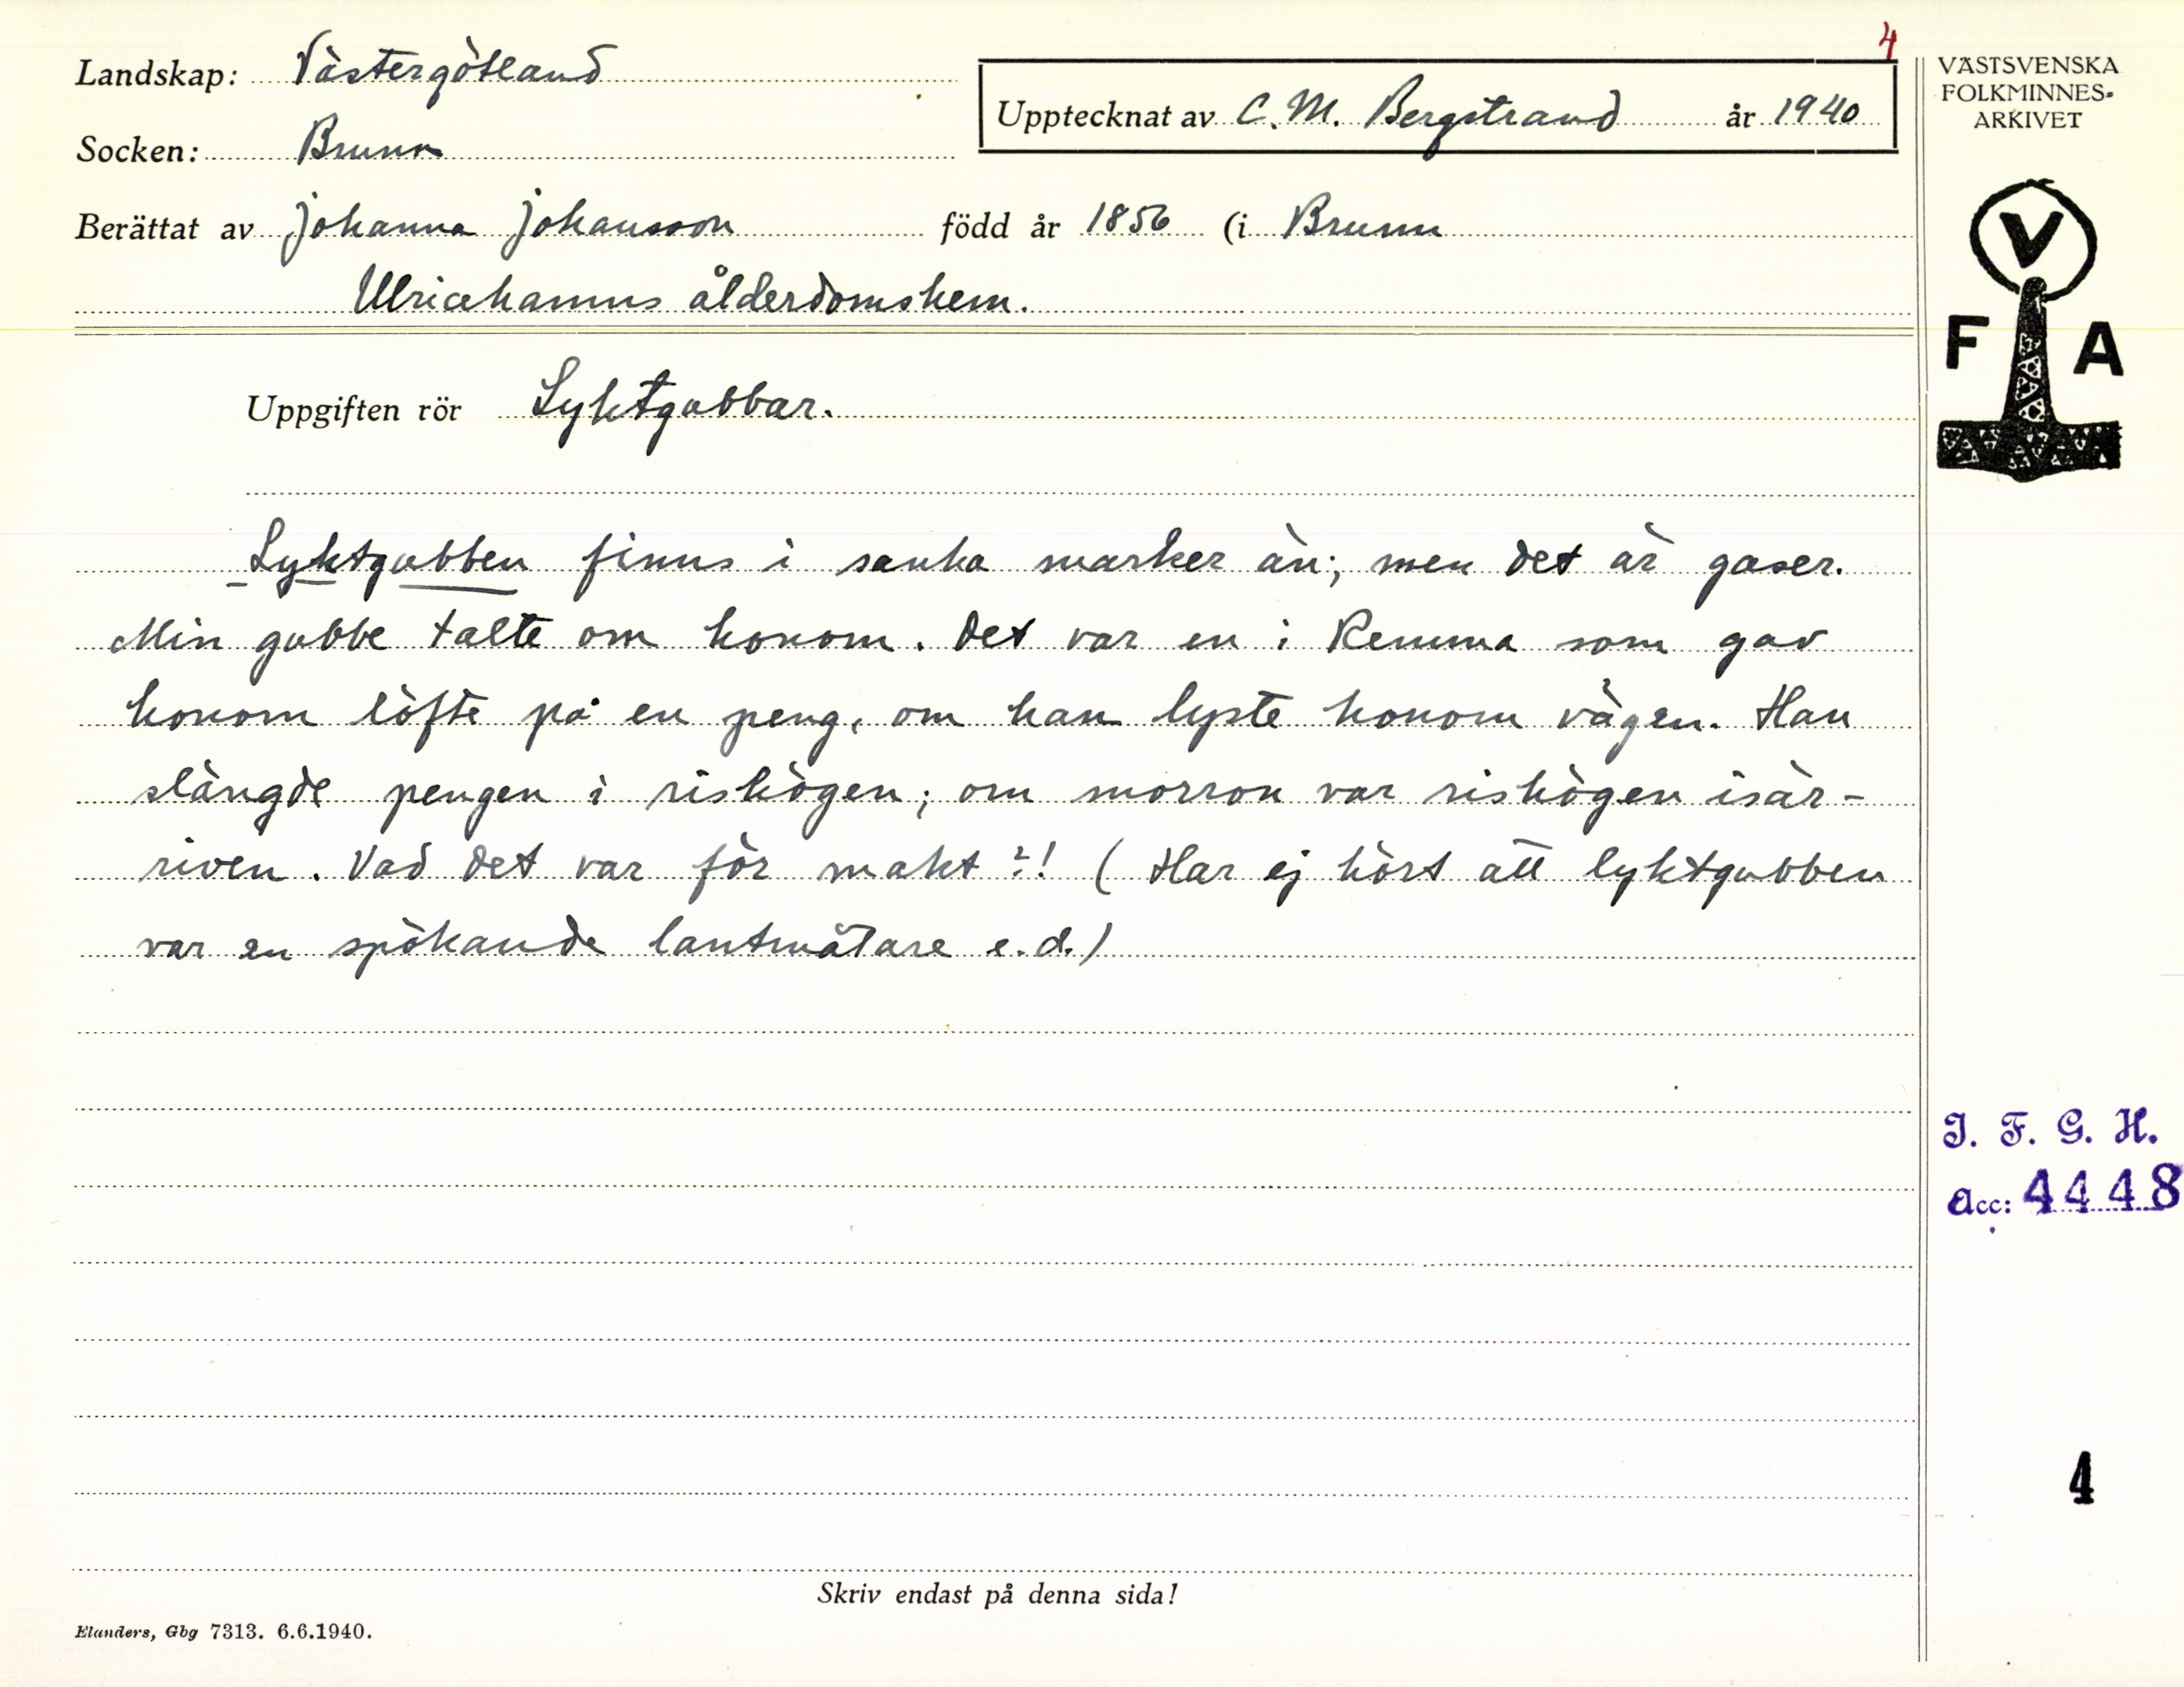 4
Landskap: Västergötland
Upptecknat av C. M. Bergstrand år 1940
Socken: Brunn
Berättat av Johanna Johansson född år 1856 (i Brunn
Ulricehamns ålderdomshem.
Uppgiften rör Lyktgubbar.
Lyktgubben finns i sanka marker än; men det är gaser.
Min gubbe talte om honom. Det var en i Remma som gav
honom löfte på en peng, om han lyste honom vägen. Han
slängde pengen i rishögen; om morron var rishögen isär-
riven. Vad det var för makt?! (Har ej hört att lyktgubben
var en spökande lantmätare e.d.)
Skriv endast på denna sida!
Elanders, Gbg 7313. 6.6.1940.
VÄSTSVENSKA
FOLKMINNES-
ARKIVET
V
F A
I. F. G. H.
Acc: 4448
4